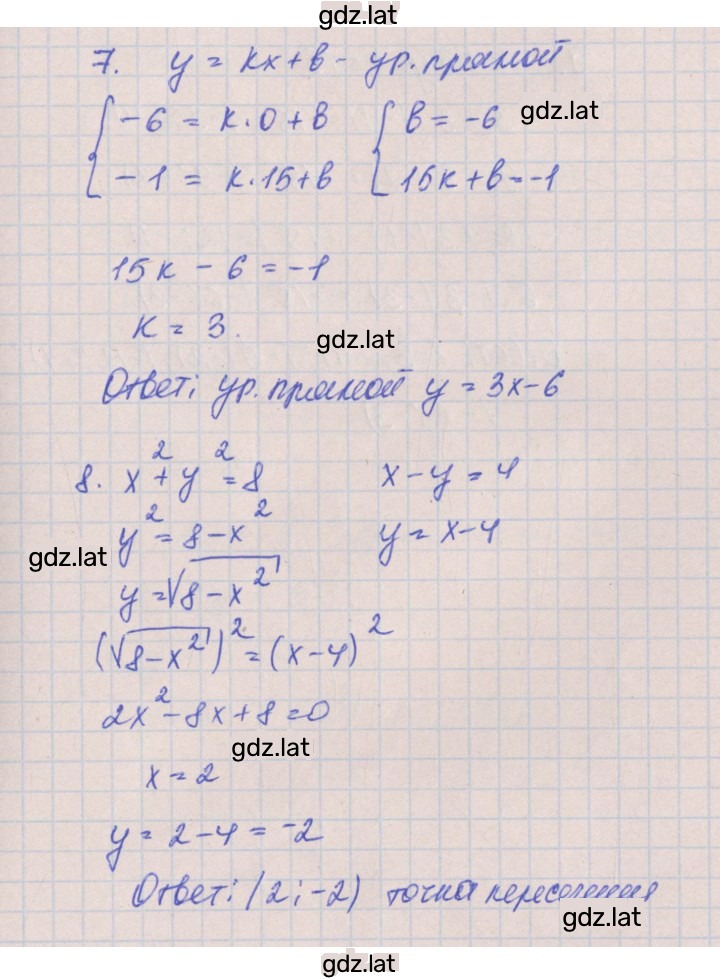 gdz.lat
7. y = kx + b - ур. прямой
{ -6 = k·0 + b { b = -6 gdz.lat
-1 = k·15 + b 15k + b = -1
15k - 6 = -1
k = 3.
gdz.lat
Ответ: ур. прямой y = 3x - 6
8. x² + y² = 8 x - y = 4
y² = 8 - x² y = x - 4
gdz.lat
y = √8 - x²
(√8 - x²)² = (x - 4)²
2x² - 8x + 8 = 0
gdz.lat
x = 2
y = 2 - 4 = -2
Ответ: (2; -2) точка пересечения
gdz.lat
gdz.lat